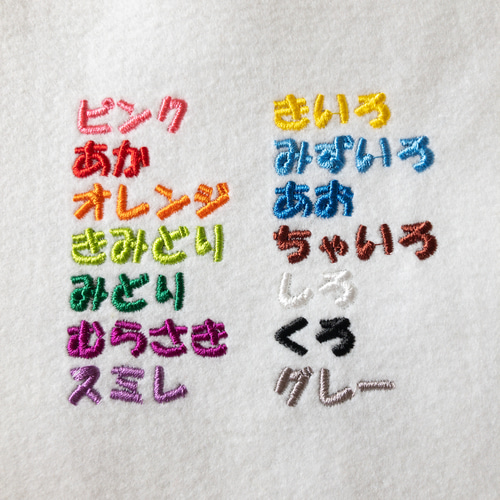 ピンク
あか
オレンジ
きみどり
みどり
むらさき
スミレ
きいろ
みずいろ
あお
ちゃいろ
しろ
くろ
グレー